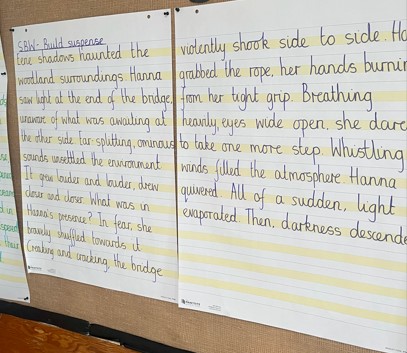 S.B.W- Build suspense
Eerie shadows haunted the
woodland surroundings. Hanna
saw light at the end of the bridge,
unaware of what was awaiting at
the other side. Ear splitting, ominous
sounds unsettled the environment
It grew louder and louder, drew
closer and closer. What was in
Hanna's presence? In fear, she
bravely shuffled towards it.
Creaking and cracking, the bridge
violently shook side to side. Ha
grabbed the rope, her hands burnin
from her tight grip. Breathing
heavily, eyes wide open, she dare
to take one more step. Whistling
winds filled the atmosphere. Hanna
quivered. All of a sudden, light
evaporated. Then, darkness descende